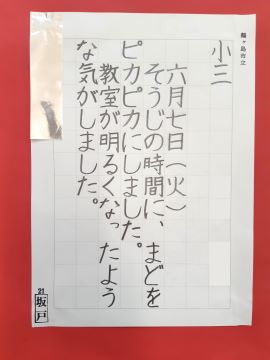 鶴ヶ島市立
小三
六月七日（火）
そうじの時間に、まどを
ピカピカにしました。
教室が明るくなったよう
な気がしました。
21
坂戸